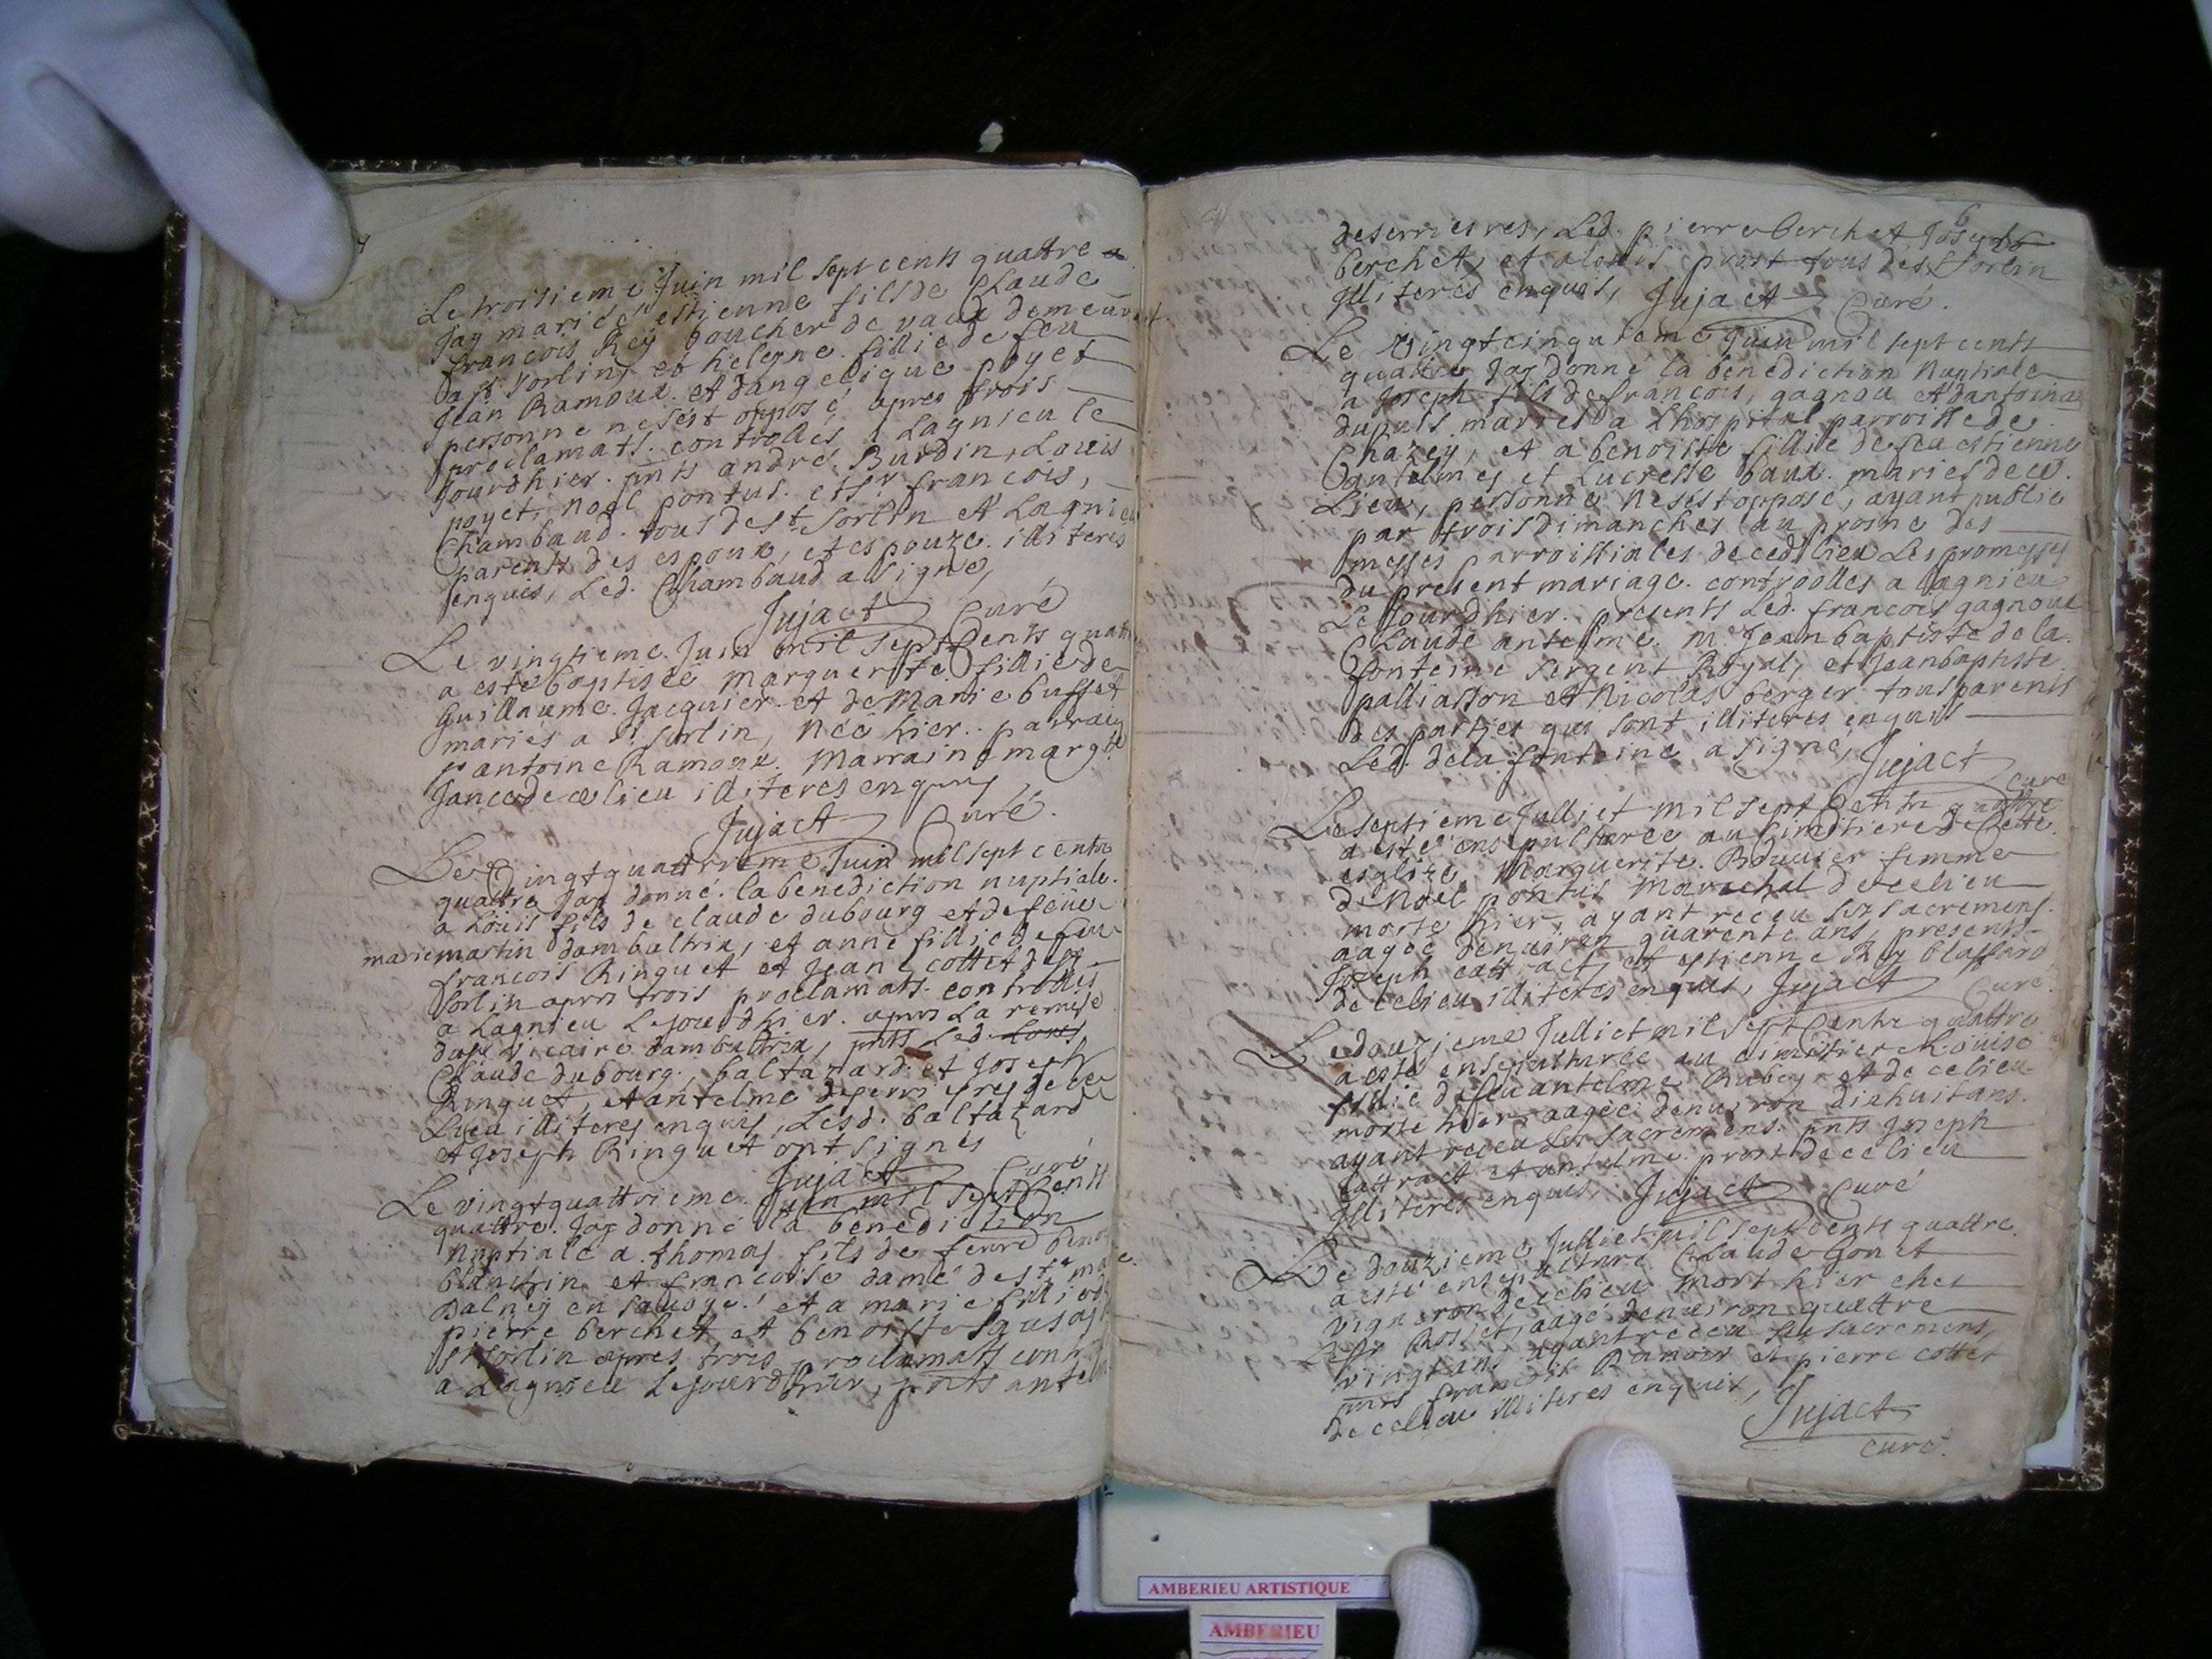 Le troisieme Juin mil sept cents quattre
Jay marié estienne fils de Claude
francois Rey boucher de vaux demeurant
a st sorlin, et helegne fillie de feu
Jean Ramoux et dangelique poyet
personne ne sest opposé apres trois
proclamats controllés a Lagnieu le
jourdhier pnts andré Burdin, Louis
poyet, noel pontus et sr francois,
Chambaud tous de st sorlin et Lagnieu
parents des espoux, et espouze illiteres
enquis, Led. Chambaud a signé,
Jujact Curé
Le vingtieme Juin mil sept Cents quattre
a esté baptisée marguerite fillie de
Guillaume Jacquier et de Marie buffet
maries a st sorlin, née hier parrain
antoine Ramoux Marraine margte
Jance de ce lieu illiteres enquis,
Jujact Curé.
Le vingtquattrieme Juin mil sept cents
quattre Jay donné la benediction nuptiale
a Louis fils de claude dubourg et de feüe
marie martin dambultrix, et anne fillie de feu
francois Ringuet et Jeane cottet de st
sorlin apres trois proclamats controllés
a Lagnieu Le jourdhier apres La remise
du sr vicaire dambultrix, pnts Led. Louis
Claude dubourg, baltazard et Joseph
Ringuet, et antelme deserrieres de ce
Lieu illiteres enquis, Lesd. baltazard
et Joseph Ringuet ont signés
Jujact Curé
Le vingtquattrieme Juin mil sept Cents
quattre Jay donné la benediction
Nuptiale a thomas fils de feure
blanchin et francoise dame de ste marie
Dalney en sauoye et a marie fillie de
pierre berchet et benoiste
st sorlin apres trois proclamats
a Lagnieu Le jourdhier, pnts
6
deserrieres, Led. pierre berchet Joseph
berchet, et alexis prost tous de st sorlin
illiteres enquis, Jujact Curé.
Le vingtcinquieme Juin mil sept cents
quattre Jay donné la benediction Nuptiale
a Joseph fils de francois gagnou et dantoina
dupuis maries a Lhospital parroisse de
Chazey, et a benoiste fillie de feu estienne
antelme et Lucresse baux maries de ce
Lieu, personne ne sest opposé, ayant publié
par trois dimanches au prosne des
messes parroissiales de ced. lieu Les promesses
du present mariage controolles a Lagnieu
Le Jourdhier presents Led. francois gagnoux
Claude antelme, Me Jean baptiste de la
fonteine sergent Royal, et Jean baptiste
palliasson et Nicolas berger tous parents
des parties qui sont illiteres enquis
Led. de la fonteine a signé, Jujact
Curé
Le septieme Julliet mil sept Cents quattre
a esté ensepulturée au cimitiere de Cette
esglize Marguerite femme
de Noel pontus Marechal de ce lieu
morte hier, ayant receu ses sacremens
aagée denuiron quarente ans, presents
Joseph cattract et estienne Rey blaffard
de ce lieu illiteres enquis, Jujact Curé
Le douzieme Julliet mil sept Cents quattre
a esté ensepulturée au cimitiere Louise
fillie de feu antelme et de ce lieu
morte hier aagée denuiron dixhuit ans
ayant receu ses sacremens pnts Joseph
cattract et antelme prost de ce lieu
illiteres enquis, Jujact Curé
Le douzieme Julliet mil sept Cents quattre
a esté ensepulturé Claude Gonet
vigneron de ce lieu mort hier ches
aagé denuiron quattre
vingt ans ayant receu ses sacremens
pnts francois Ramoux et pierre cottet
de ce lieu illiteres enquis,
Jujact
curé.
AMBERIEU ARTISTIQUE
AMBERIEU